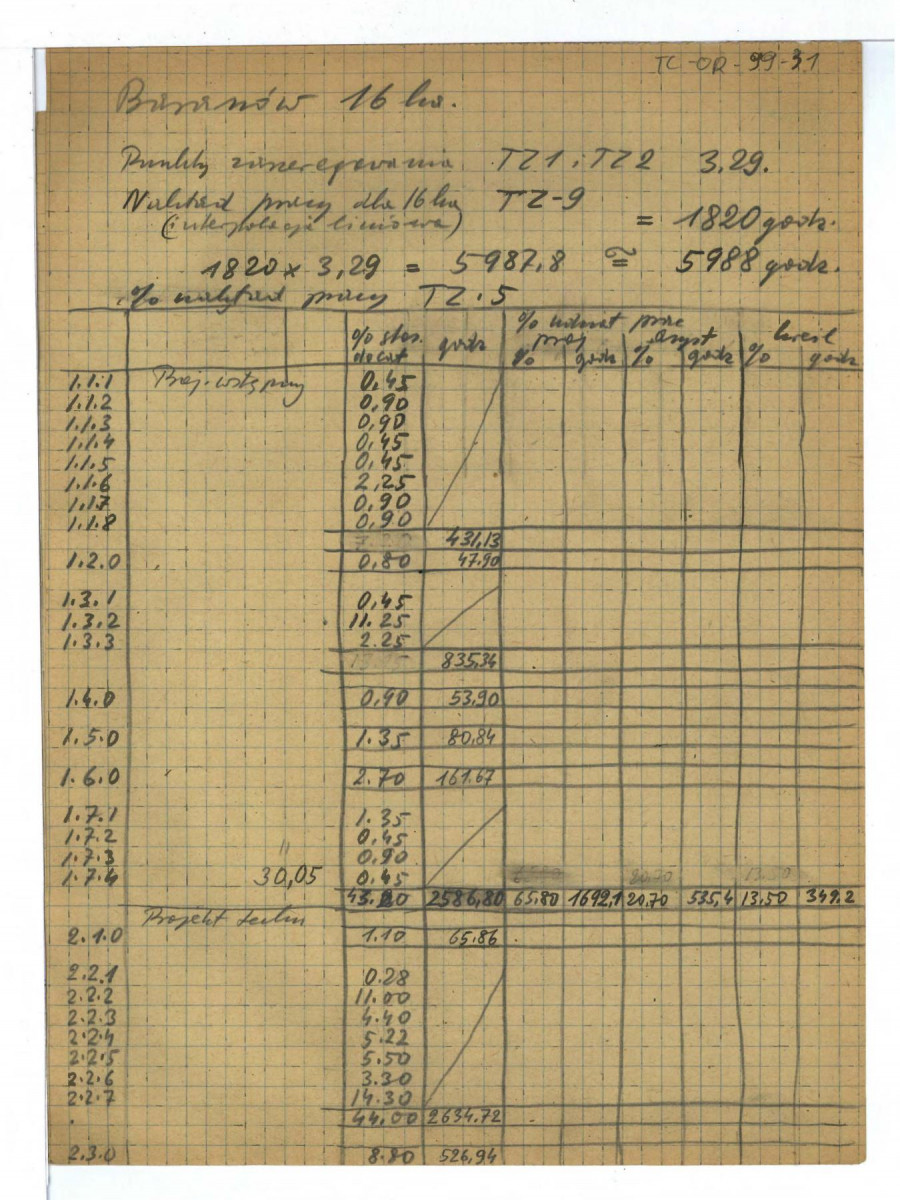 TC-OR-99-31
Baranów 16 ha.
Punkty zaszeregowania TZ1 i TZ2 3.29.
Nakład pracy dla 16 ha TZ-9
(interpolacja liniowa) = 1820 godz.
1820 x 3,29 = 5987,8 ≅ 5988 godz.
% nakład pracy TZ.5
% udział prac
% stos. godz proj asyst kreśl
% godz % godz % godz
1.1.1 Proj. wstępny 0,45
1.1.2 0,90
1.1.3 0,90
1.1.4 0,45
1.1.5 0,45
1.1.6 2,25
1.1.7 0,90
1.1.8 0,90
7.20 431,13
1.2.0 0,80 47.90
1.3.1 0,45
1.3.2 11.25
1.3.3 2.25
835,34
1.4.0 0,90 53,90
1.5.0 1.35 80,84
1.6.0 2.70 161.67
1.7.1 1.35
1.7.2 0,45
1.7.3 " 0,90
1.7.4 30,05 0,45 20.70 13.50
43.20 2586,80 65.80 1692,1 20,70 535,4 13,50 349.2
Projekt techn
2.1.0 1.10 65.86
2.2.1 0.28
2.2.2 11.00
2.2.3 4.40
2.2.4 5.22
2.2.5 5.50
2.2.6 3.30
2.2.7 14.30
44,00 2634.72
2.3.0 8.80 526,94